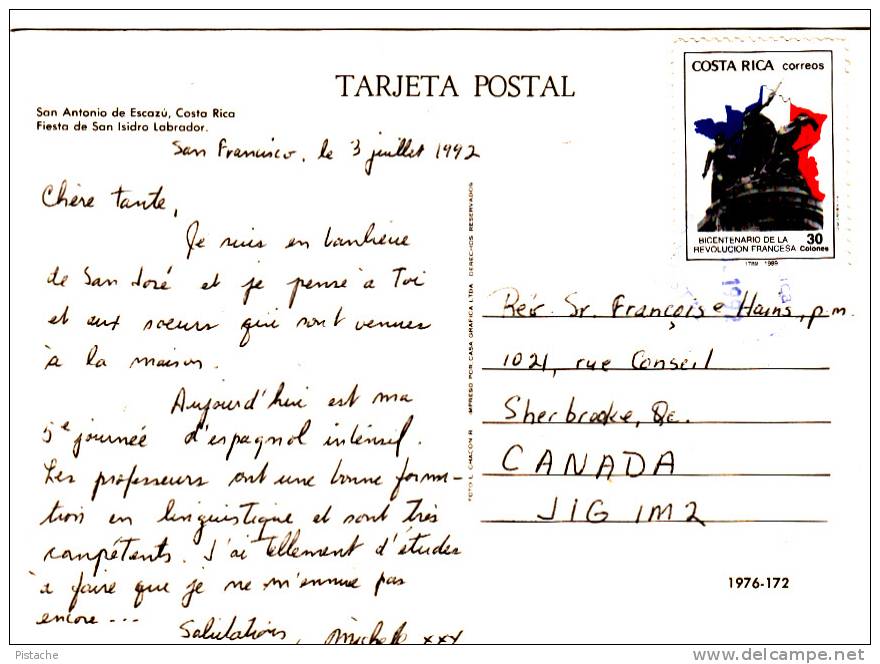 TARJETA POSTAL
San Antonio de Escazú, Costa Rica
Fiesta de San Isidro Labrador.
San Francisco, le 3 juillet 1992
Chère tante,
Je suis en banlieue
de San José et je pense à Toi
et aux soeurs qui sont venues
à la maison.
Aujourd'hui est ma
5e journée d'espagnol intensif.
Les professeurs ont une bonne forma-
tion en linguistique et sont très
compétents. J'ai tellement d'études
à faire que je ne m'ennuie pas
encore...
Salutations, Michelle xxx
FOTO L. CHACON R. IMPRESO POR CASA GRAFICA LTDA. DERECHOS RESERVADOS
COSTA RICA correos
BICENTENARIO DE LA
REVOLUCION FRANCESA
30
Colones
1789 1989
1992
Rév. Sr. Françoise Hains, p.m.
1021, rue Conseil
Sherbrooke, Qc.
CANADA
J1G 1M2
1976-172
Pistache
www.delcampe.net